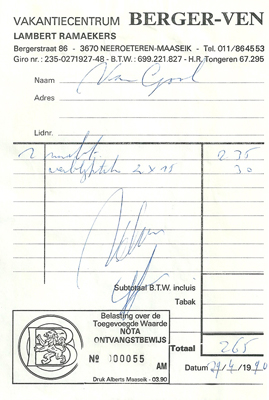 VAKANTIECENTRUM BERGER-VEN
LAMBERT RAMAEKERS
Bergerstraat 86 - 3670 NEEROETEREN-MAASEIK - Tel. 011/864553
Giro nr.: 235-0271927-48 - B.T.W.: 699.221.827 - H.R. Tongeren 67.295
Naam
Adres
Lidnr.
235
2 x 15 30
Subtotaal B.T.W. incluis
Tabak
Belasting over de
Toegevoegde Waarde
NOTA
ONTVANGSTBEWIJS
B
Nº 000055 AM
Druk Alberts Maaseik - 03.90
Totaal 265
Datum 29/4/1990